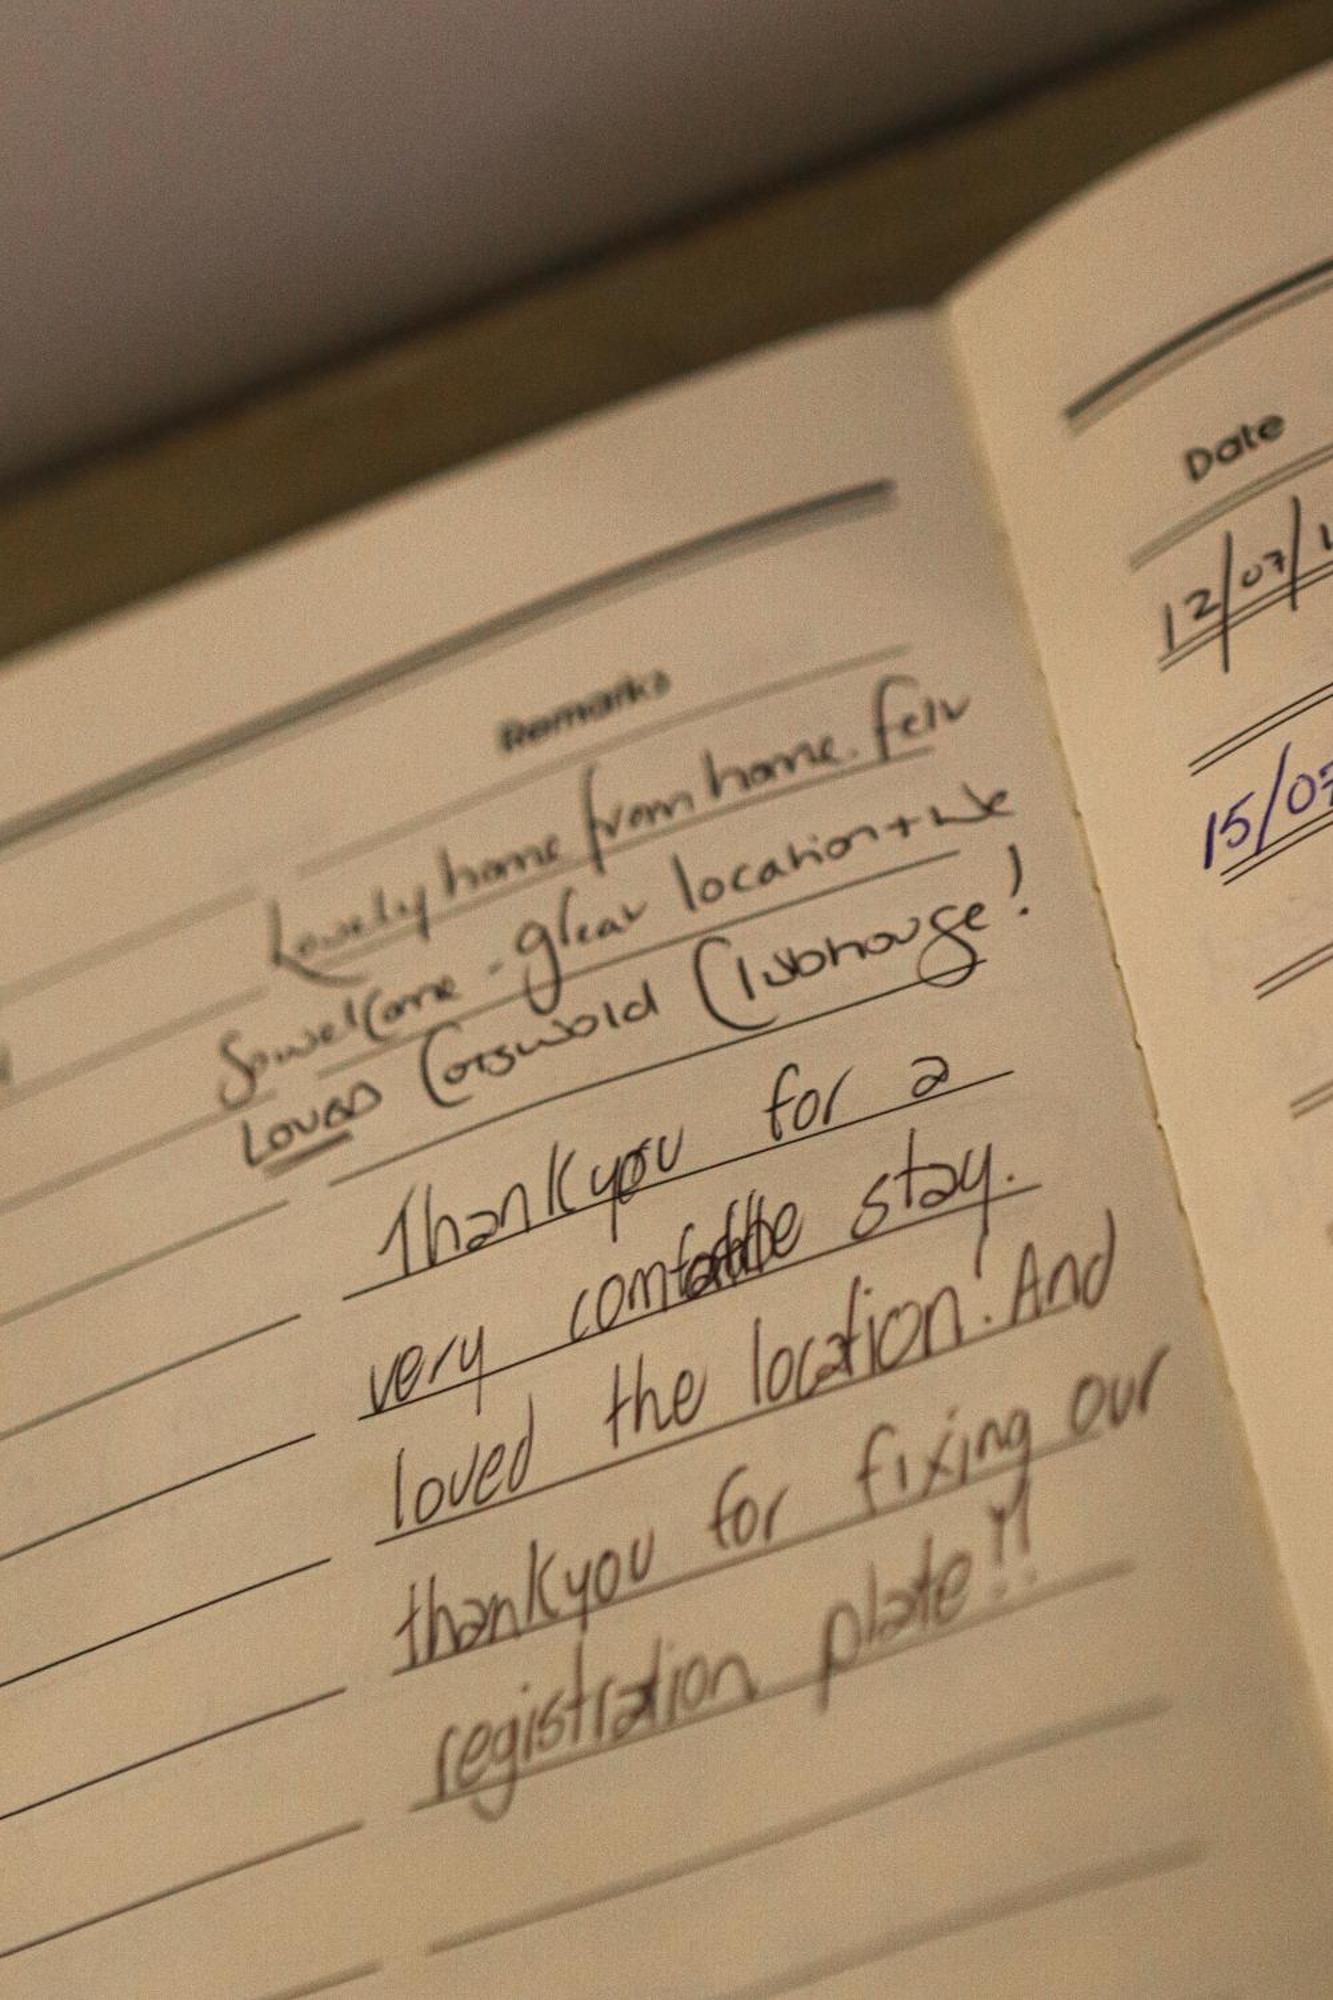 Remarks
Lovely home from home. felt
so welcome - great location + we
LOVED Cotswold Clubhouse!
Thankyou for a
very comfortable stay.
loved the location! And
thankyou for fixing our
registration plate!!
Date
12/07/1
15/07